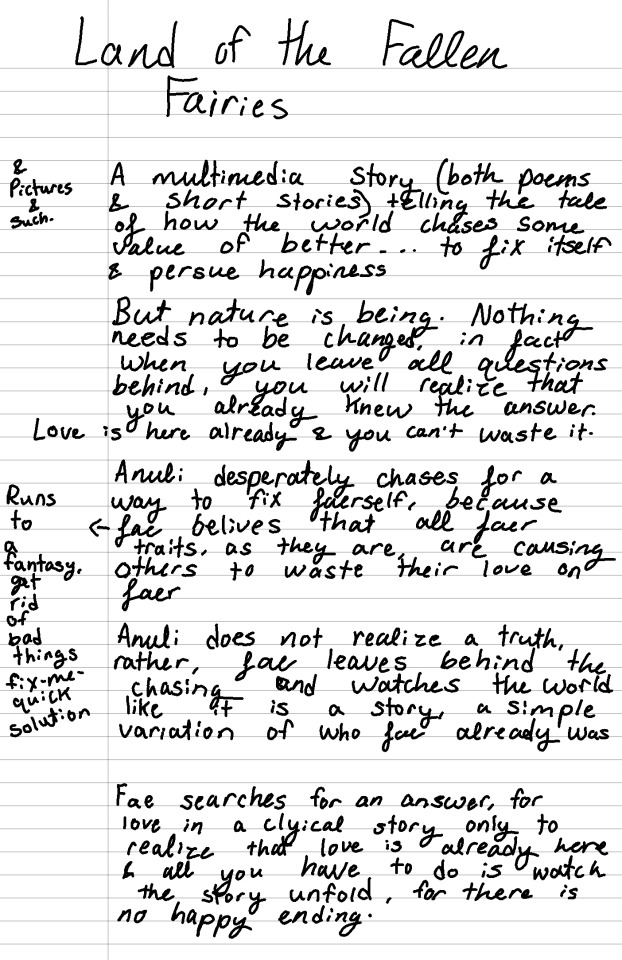 Land of the Fallen
Fairies
&
Pictures
&
such.
A multimedia story (both poems
& short stories) telling the tale
of how the world chases some
value of better.... to fix itself
& persue happiness
But nature is being. Nothing
needs to be changed, in fact
when you leave all questions
behind, you will realize that
you already knew the answer.
Love is here already & you can't waste it.
Anuli desperately chases for a
way to fix faerself, because
← fae belives that all faer
traits, as they are, are causing
others to waste their love on
faer
Runs
to
a
fantasy.
get
rid
of
bad
things
fix-me-
quick
solution
Anuli does not realize a truth,
rather, fae leaves behind the
chasing and watches the world
like it is a story, a simple
variation of who fae already was
Fae searches for an answer, for
love in a clyical story only to
realize that love is already here
& all you have to do is watch
the story unfold, for there is
no happy ending.